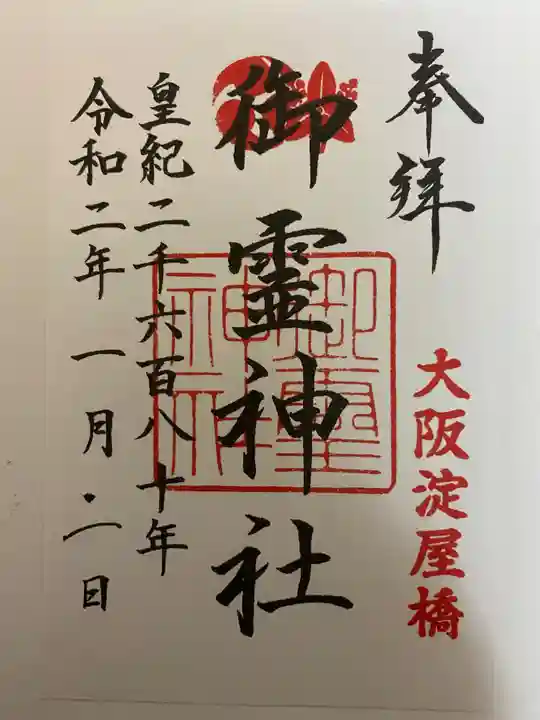 奉拝
大阪淀屋橋
御霊神社
御霊神社
皇紀二千六百八十年
令和二年一月
日